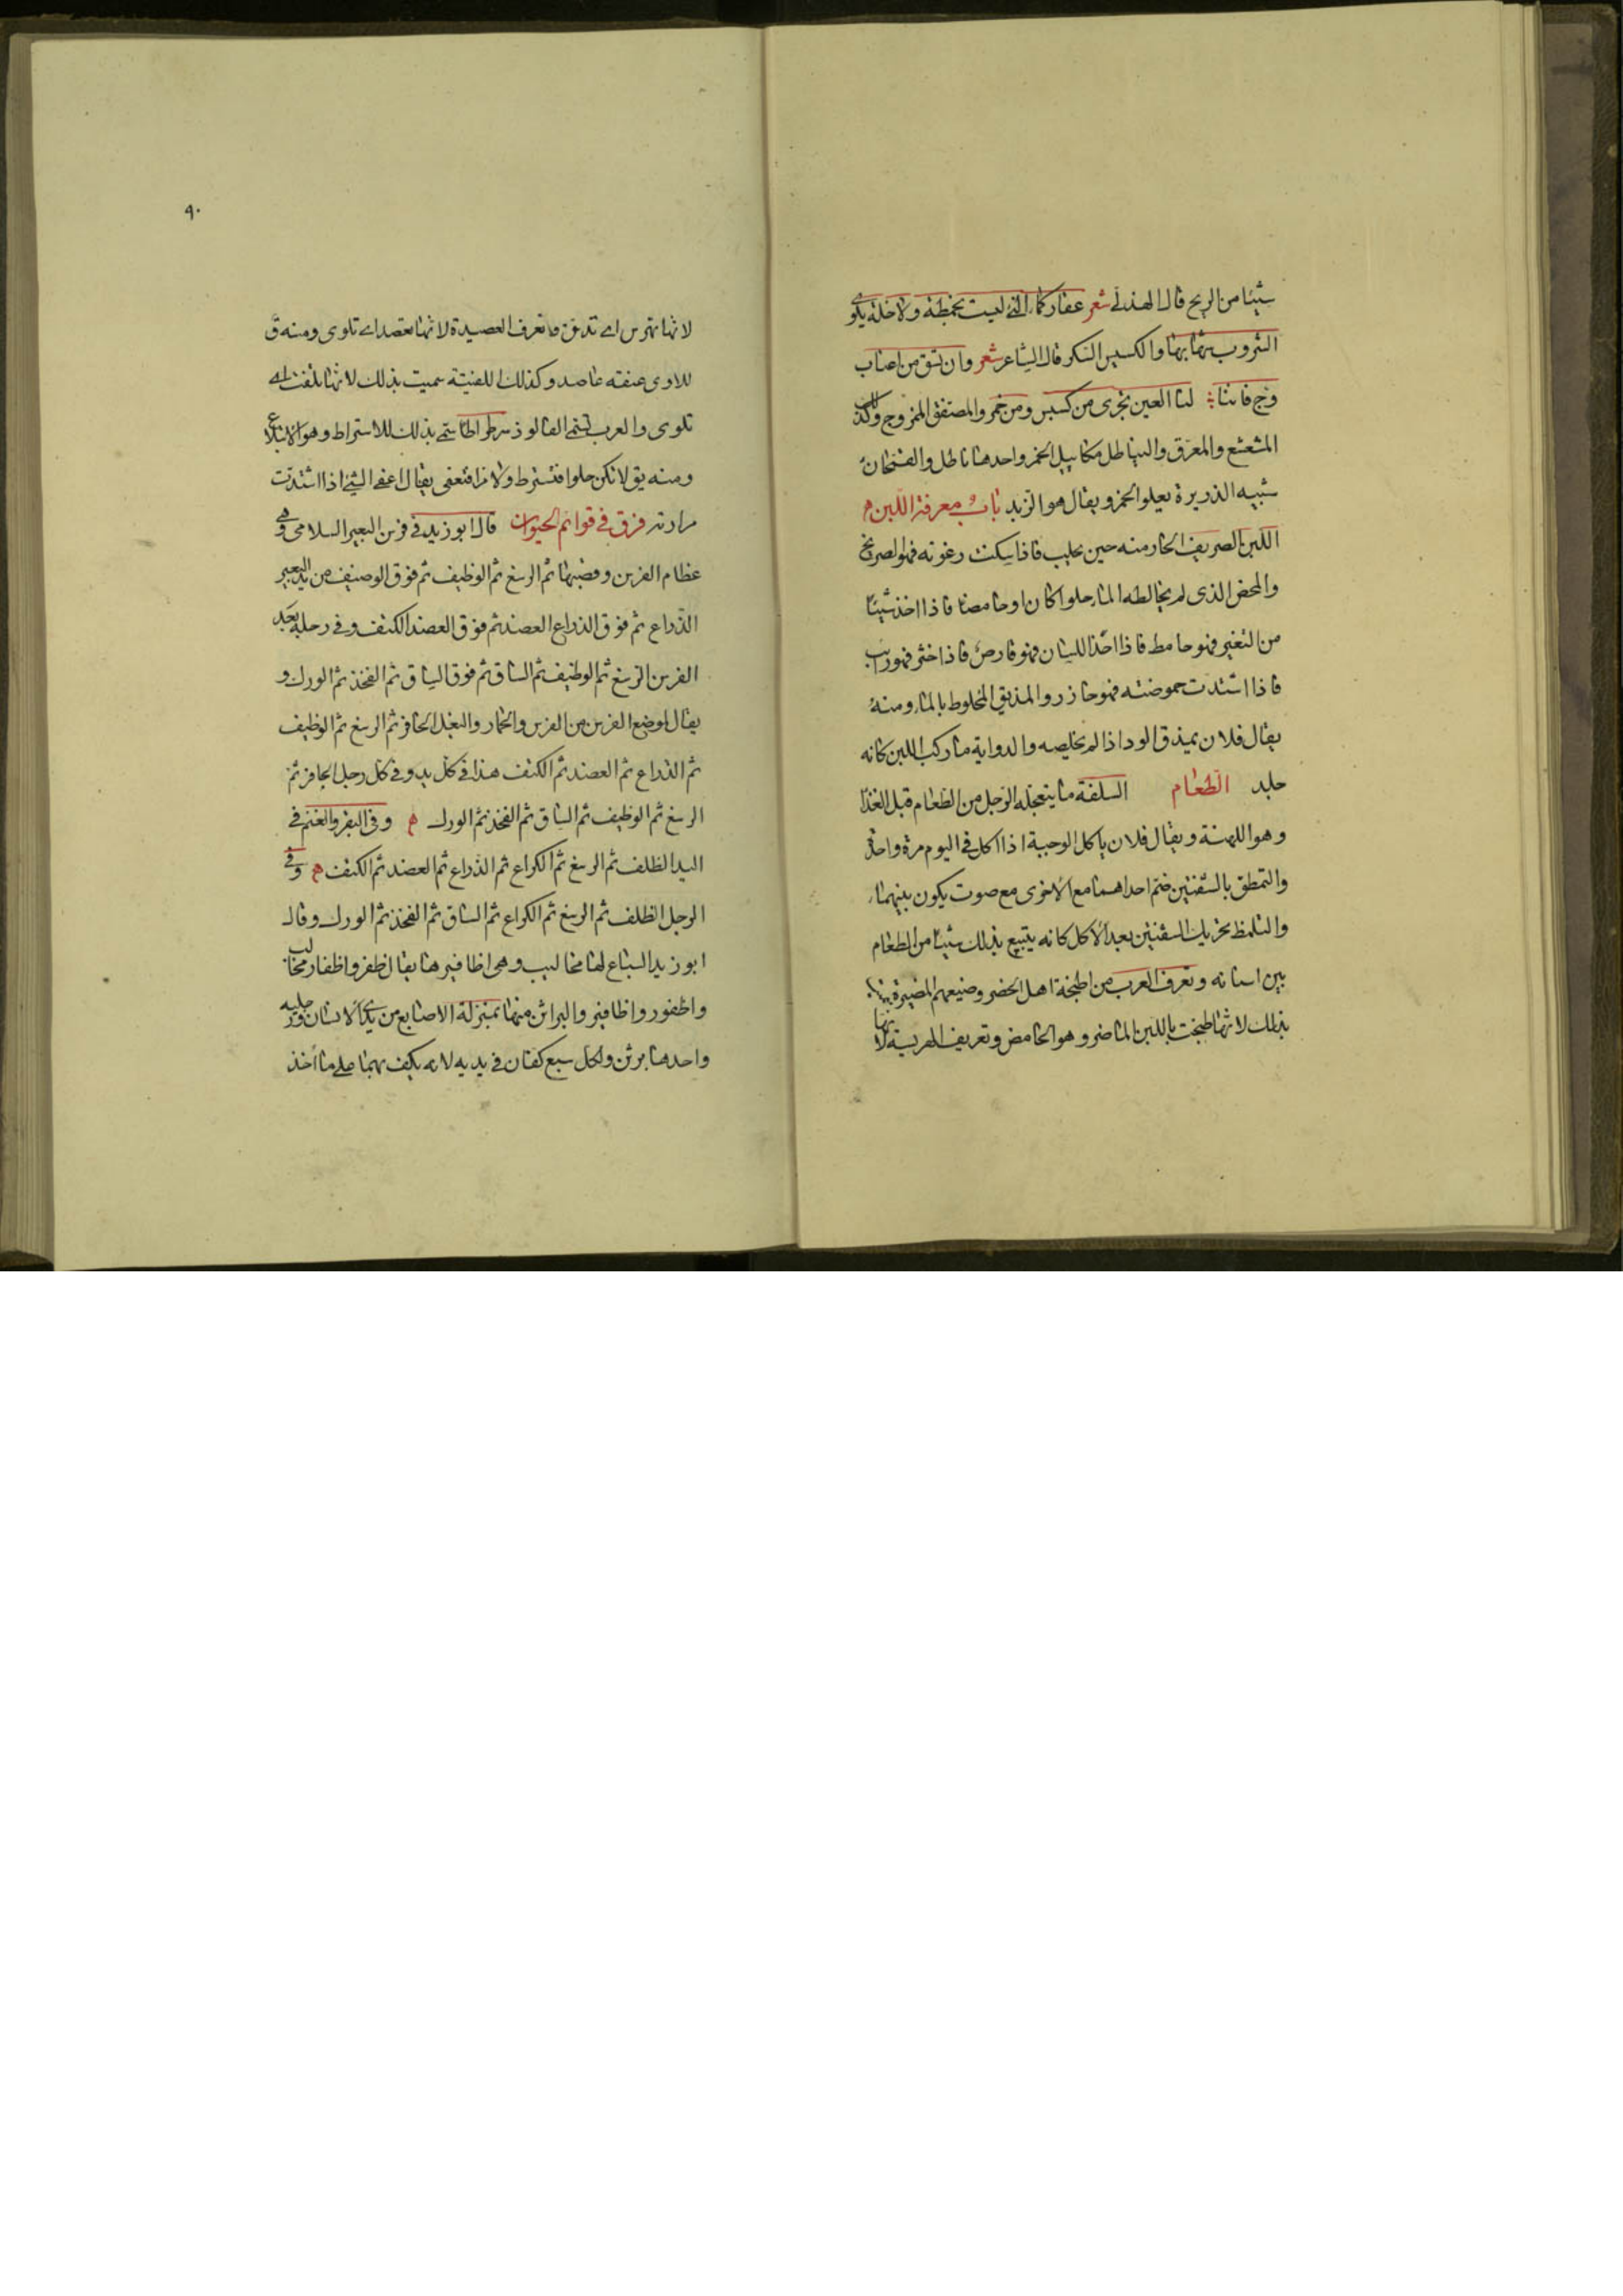 شيئا من الريح قال الهذلى شعر عقار كماء النى ليست بخمطة ولا خلة يكوى
الشروب شهابها والكسيس السكر قال الشاعر شعر وان تسق من اعناب
وج فاننا لنا العين تجرى من كسيس ومن خمر والمصفق الممزوج وكذلك
المشعشع والمعرق والنياطل مكاييل الخمر واحدها ناطل والقمحان
شبيه الذريرة يعلو الخمر ويقال هو الزبد باب معرفة اللبن
اللبن الصريف الحار منه حين يحلب فاذا سكنت رغوته فهو الصريح
والمحض الذى لم يخالطه الماء حلوا كان او حامضا فاذا اخذ شيئا
من التغير فهو خامط فاذا اخذ اللسان فهو قارص فاذا خثر فهو رايب
فاذا اشتدت حموضته فهو حازر والمذيق المخلوط بالماء ومنه
يقال فلان يمذق الود اذا لم يخلصه والدواية ما ركب اللبن كانه
جلد الطعام السلفة ما يتعجله الرجل من الطعام قبل الغذا
وهو اللهنة ويقال فلان ياكل الوجبة اذا اكل فى اليوم مرة واحدة
والتمطق بالشفتين ضم احداهما مع الاخرى مع صوت يكون بينهما
والتلمظ تحريك الشفتين بعد الاكل كانه يتتبع بذلك شيئا من الطعام
بين اسنانه وتعرف العرب من اطبخة اهل الحضر وصنيعهم المضيرة
بذلك لانها طبخت باللبن الماضر وهو الحامض وتعريف الهريسة لانها
٩٠
لانها تهرس اى تدق وتعرف العصيدة لانها تعصد اى تلوى ومنه ق
للاوى عنقه عاصد وكذلك اللفيتة سميت بذلك لانها تلفت اى
تلوى والعرب تسمى الفالوذ سرطراطا سمى بذلك للاستراط وهو الابتلاع
ومنه يق لا تكن حلوا فتسترط ولا مرا فتعفى يقال اعفى الشئ اذا اشتدت
مرارته فرق فى قوائم الحيوان قال ابو زيد فى فرسن البعير السلامى وهى
عظام الفرسن وقصبها ثم الرسغ ثم الوظيف ثم فوق الوصيف من يد البعير
الذراع ثم فوق الذراع العضد ثم فوق العضد الكتف وفى رجله بعد
الفرسن الرسغ ثم الوظيف ثم الساق ثم فوق الساق ثم الفخذ ثم الورك و
يقال لموضع الفرسن من الفرس والحمار والبغل الحافر ثم الرسغ ثم الوظيف
ثم الذراع ثم العضد ثم الكتف هذا فى كل يد وفى كل رجل الحافر ثم
الرسغ ثم الوظيف ثم الساق ثم الفخذ ثم الورك وفى البقر والغنم فى
اليد الظلف ثم الرسغ ثم الكراع ثم الذراع ثم العضد ثم الكتف وفى
الرجل الظلف ثم الرسغ ثم الكراع ثم الساق ثم الفخذ ثم الورك وقال
ابو زيد السباع لها مخاليب وهى اظافيرها يقال ظفر واظفار مخالب
واظفور واظافير والبراثن منها بمنزلة الاصابع من يدى الانسان ورجليه
واحدها برثن ولكل سبع كفان فى يديه لانه يكف بهما على ما اخذ